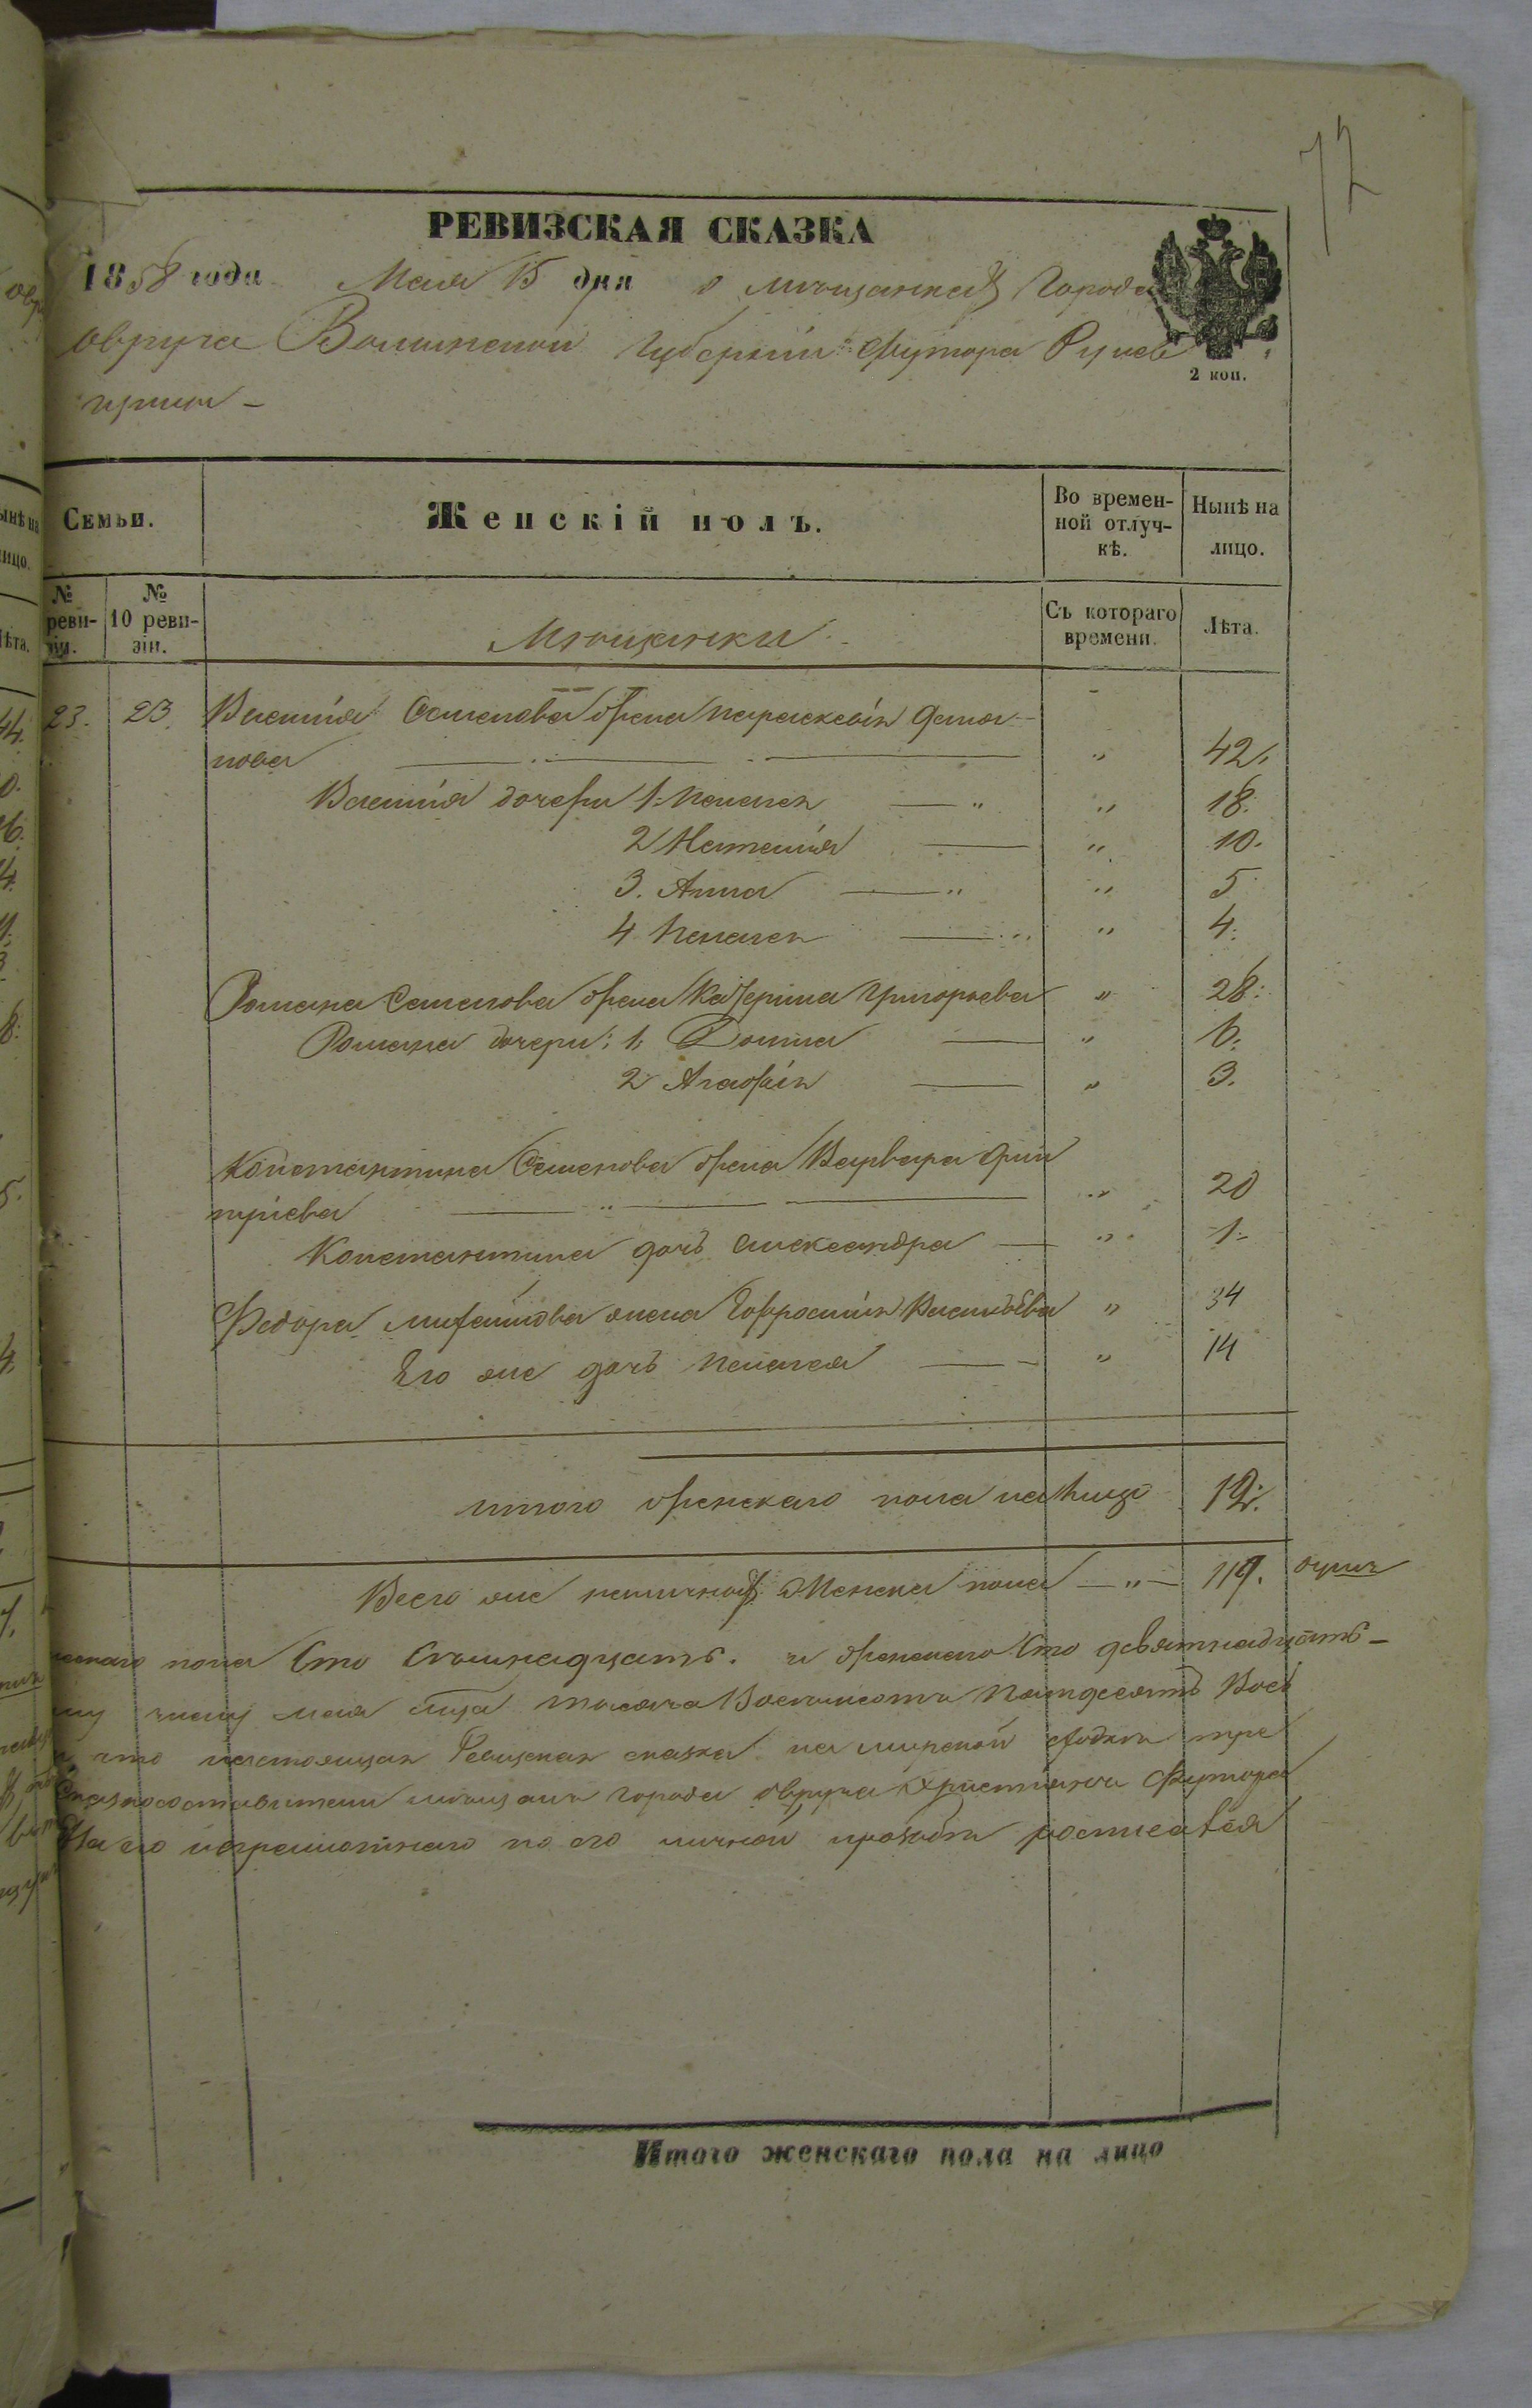 72
РЕВИЗСКАЯ СКАЗКА
1858 года Мая 15 дня о мѣщанкахъ Города
Овруча Волынской Губерніи Футора
2 коп.
Семьи.
Женскій полъ.
Во времен-
ной отлуч-
кѣ.
Нынѣ на
лицо.
№
реви-
зіи.
№
10 реви-
зіи.
Мѣщанки
Съ котораго
времени.
Лѣта.
23. 23. Василія Семенова жена Параскевія Дамя-
нова " 42.
Василія дочери 1. Пелагея " 18.
2 Наталія " 10.
3. Анна " 5
4 Пелагея " 4.
Романа Семенова жена Катерина Григорьева " 28.
Романа дочери: 1. Домна " 6.
2 Агафія " 3.
Константина Семенова жена Варвара Дми
тріева " 20
Константина дочь Александра " 1.
Федора Михайлова жена Евфросинія Васильева " 34
Его же дочь Пелагея " 14
Итого женскаго пола на лицо 12.
Всего же наличнаго Женска пола — " — 119. душъ
пола Сто и женскаго Сто девятнадцать —
мая тысяча Восемьсотъ Пятдесятъ Вось
что настоящая Ревизская сказка на мірской сходкѣ
Сказкосоставители мѣщане города Овруча Футора
неграмотнаго по его личной прозьбѣ росписался
Итого женскаго пола на лицо